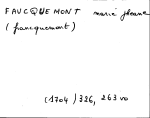 FAUCQUEMONT marie jheanne
(faucquemont)
(1704) 326, 263 vo